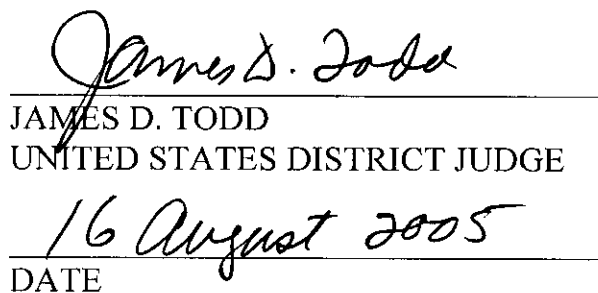 James D. Todd
JAMES D. TODD
UNITED STATES DISTRICT JUDGE
16 August 2005
DATE